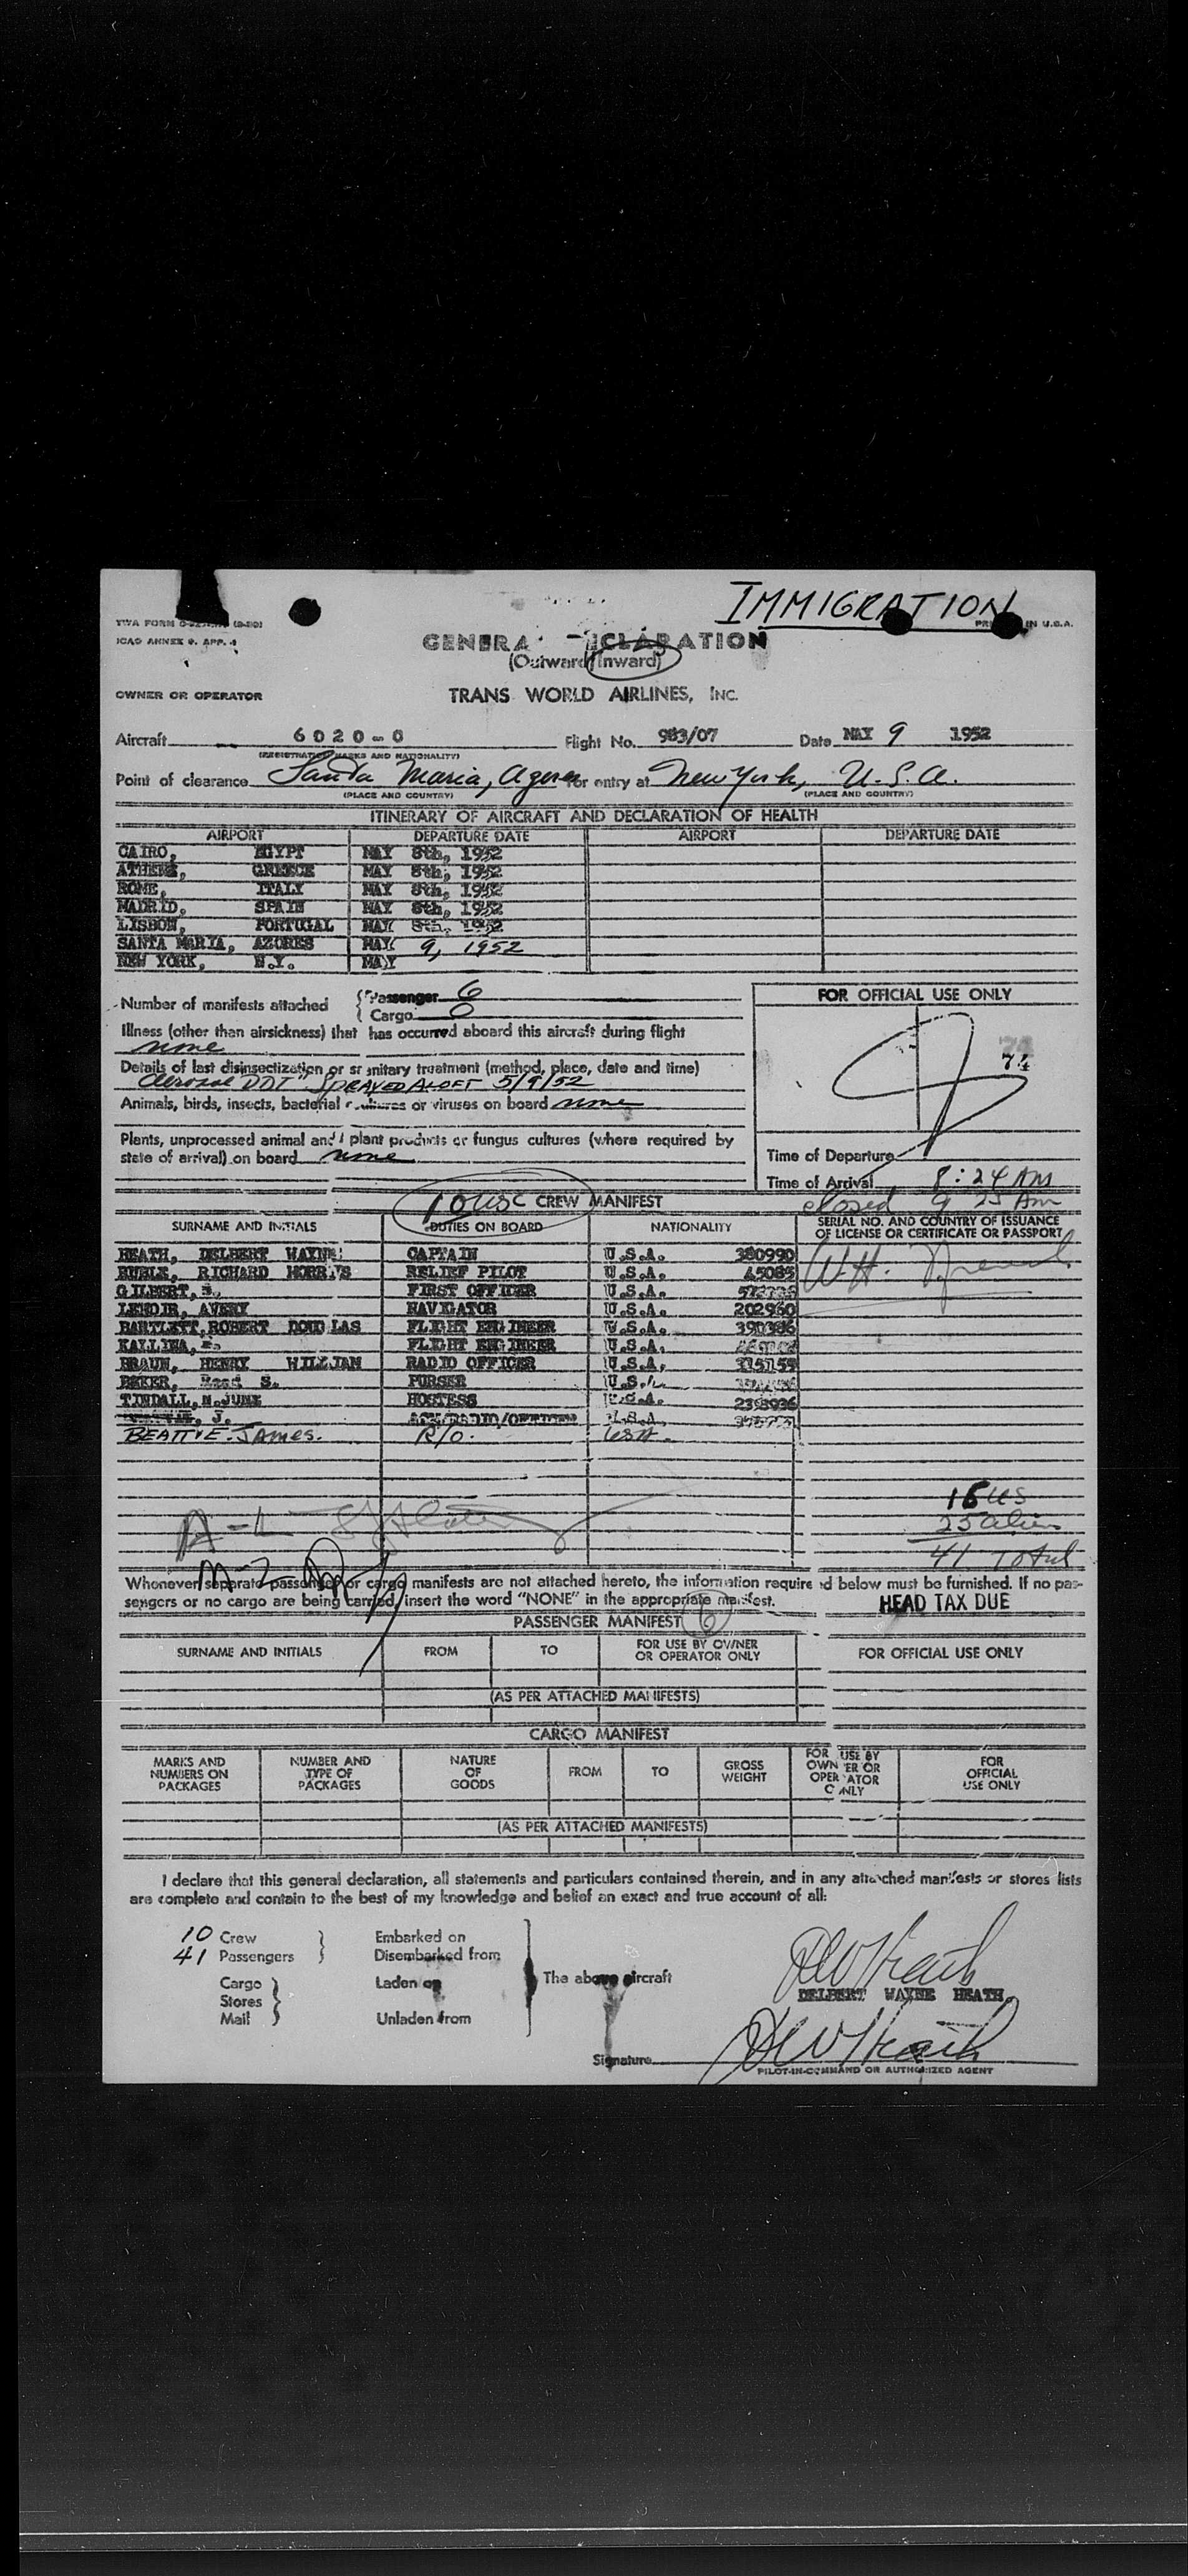 IMMIGRATION
TWA FORM
ICAO ANNEX 9, APP. 1
IN U.S.A.
GENERA ECLARATION
(Outward) (Inward)
OWNER OR OPERATOR TRANS WORLD AIRLINES, INC.
Aircraft 6020-0 Flight No. 983/07 Date MAY 9 1952
(REGISTRATION MARKS AND NATIONALITY)
Point of clearance Santa Maria, Azores For entry at New York, U.S.A.
(PLACE AND COUNTRY) (PLACE AND COUNTRY)
ITINERARY OF AIRCRAFT AND DECLARATION OF HEALTH
AIRPORT DEPARTURE DATE AIRPORT DEPARTURE DATE
CAIRO, EGYPT MAY 8th, 1952
ATHENS, GREECE MAY 8th, 1952
ROME, ITALY MAY 8th, 1952
MADRID, SPAIN MAY 8th, 1952
LISBON, PORTUGAL MAY 8th, 1952
SANTA MARIA, AZORES MAY 9, 1952
NEW YORK, N.Y. MAY
Number of manifests attached Passenger 6
Cargo 0
FOR OFFICIAL USE ONLY
Illness (other than airsickness) that has occurred aboard this aircraft during flight
none
74
Details of last disinsectization or sanitary treatment (method, place, date and time)
Aerosol DDT "SPRAYED ALOFT 5/9/52
Animals, birds, insects, bacterial cultures or viruses on board none
Plants, unprocessed animal and plant products or fungus cultures (where required by
state of arrival) on board none
Time of Departure
Time of Arrival 8:24 AM
closed 9 25 AM
10 USC CREW MANIFEST
SURNAME AND INITIALS DUTIES ON BOARD NATIONALITY SERIAL NO. AND COUNTRY OF ISSUANCE
OF LICENSE OR CERTIFICATE OR PASSPORT
HEATH, DELBERT WAYNE CAPTAIN U.S.A. 380990
RUBLE, RICHARD MORRIS RELIEF PILOT U.S.A. 45085
GILBERT, FIRST OFFICER U.S.A.
LENOIR, AVERY NAVIGATOR U.S.A. 202960
BARTLETT, ROBERT DOUGLAS FLIGHT ENGINEER U.S.A. 390386
KALLINA, FLIGHT ENGINEER U.S.A.
BRAUN, HENRY WILLIAM RADIO OFFICER U.S.A. 315159
BEKER, S. PURSER U.S.A.
TINDALL, N. JUNE HOSTESS U.S.A. 2398936
J. ACM/RADIO/OFFICER U.S.A.
BEATTIE. JAMES. R/O. USA.
16 US
25 alien
41 Total
A-L
M-Z
Whenever separate passenger or cargo manifests are not attached hereto, the information required below must be furnished. If no pas-
sengers or no cargo are being carried, insert the word "NONE" in the appropriate manifest.
HEAD TAX DUE
PASSENGER MANIFEST 6
SURNAME AND INITIALS FROM TO FOR USE BY OWNER
OR OPERATOR ONLY FOR OFFICIAL USE ONLY
(AS PER ATTACHED MANIFESTS)
CARGO MANIFEST
MARKS AND
NUMBERS ON
PACKAGES
NUMBER AND
TYPE OF
PACKAGES
NATURE
OF
GOODS
FROM
TO
GROSS
WEIGHT
FOR USE BY
OWNER OR
OPERATOR
ONLY
FOR
OFFICIAL
USE ONLY
(AS PER ATTACHED MANIFESTS)
I declare that this general declaration, all statements and particulars contained therein, and in any attached manifests or stores lists
are complete and contain to the best of my knowledge and belief an exact and true account of all:
10 Crew Embarked on
41 Passengers Disembarked from
Cargo Laden on The above aircraft
Stores
Mail Unladen from
DW Heath
DELBERT WAYNE HEATH
Signature DW Heath
PILOT-IN-COMMAND OR AUTHORIZED AGENT